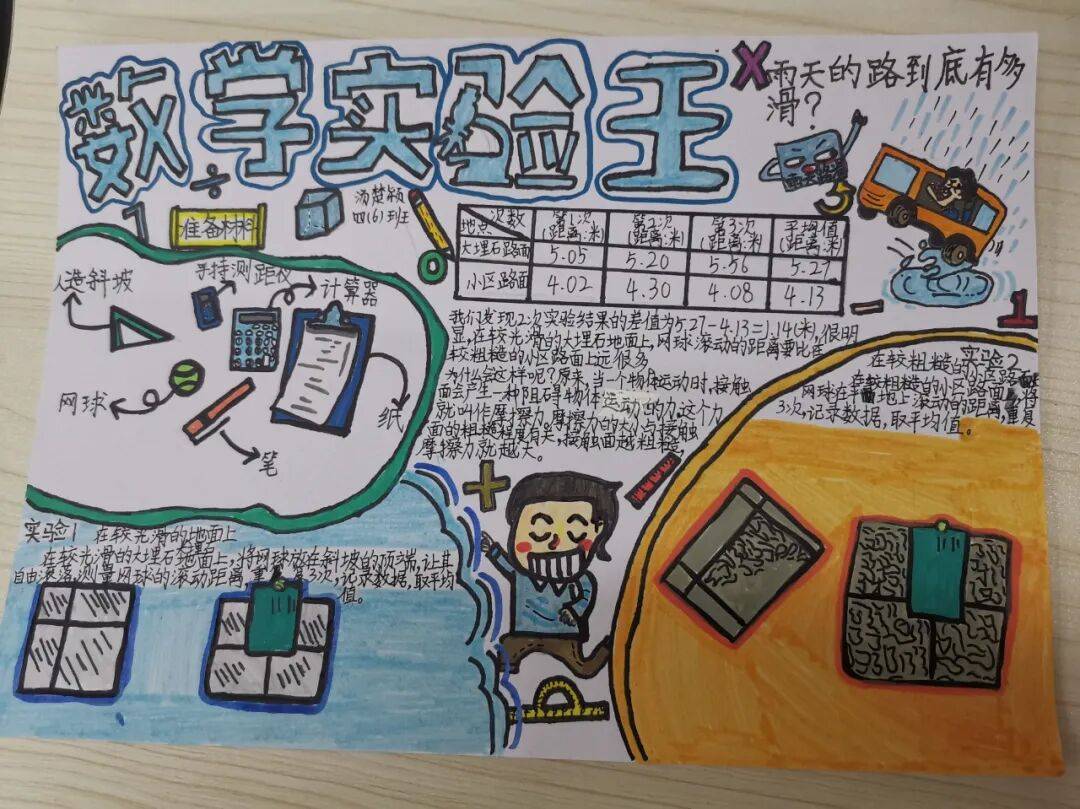 数学实验王
X雨天的路到底有多
滑？
汤楚颖
四(6)班
准备材料
人造斜坡
手持测距仪
计算器
网球
笔
纸
次数 第1次 第2次 第3次 平均值
地点 (距离:米) (距离:米) (距离:米) (距离:米)
大埋石路面 5.05 5.20 5.56 5.27
小区路面 4.02 4.30 4.08 4.13
我们发现2次实验结果的差值为5.27-4.13=1.14(米),很明
显,在较光滑的大埋石地面上,网球滚动的距离要比在
较粗糙的小区路面上远很多
为什么会这样呢?原来,当一个物体运动时,接触
面会产生一种阻碍物体运动的力,这个力
就叫作摩擦力。摩擦力的大小与接触
面的粗糙程度有关,接触面越粗糙,
摩擦力就越大。
实验1 在较光滑的地面上
在较光滑的大埋石地面上,将网球放在斜坡的顶端,让其
自由滚落,测量网球的滚动距离,重复3次,记录数据,取平均
值。
实验2
在较粗糙的小区路面
3次,记录数据,取平均值。